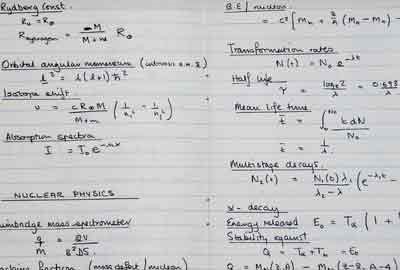 Rydberg Const.
R∞ = R∞
R hydrogen = M / M+m R∞
Orbital angular momentum (intrinsic
l² = l(l+1)ħ²
Isotope shift.
υ = cR∞M / M+m (1/n₁² - 1/n₂²)
Absorption spectra
I = I₀e
NUCLEAR PHYSICS
mbridge mass spectrometer
q/M = 2V / B²DS
fraction (mass defect / nucleon)
B.E / nucleon
= c² [Mn + Z/A (MH - Mn) -
Transformation rates
N(t) = N₀ e^-λt
Half life
τ = loge2 / λ = 0.693 / λ
Mean life time
t̄ = ∫₀^N₀ t dN / N₀
t̄ = 1/λ
Multistage decays.
N₂(t) = N₁(0)λ₁ / λ₂ - λ (e^-λ₁t -
α - decay
Energy released E₀ = Tα (1 +
Stability against
Q = Tα + Tb = E₀
Q = (Z,A) - (Z-2, A-4)